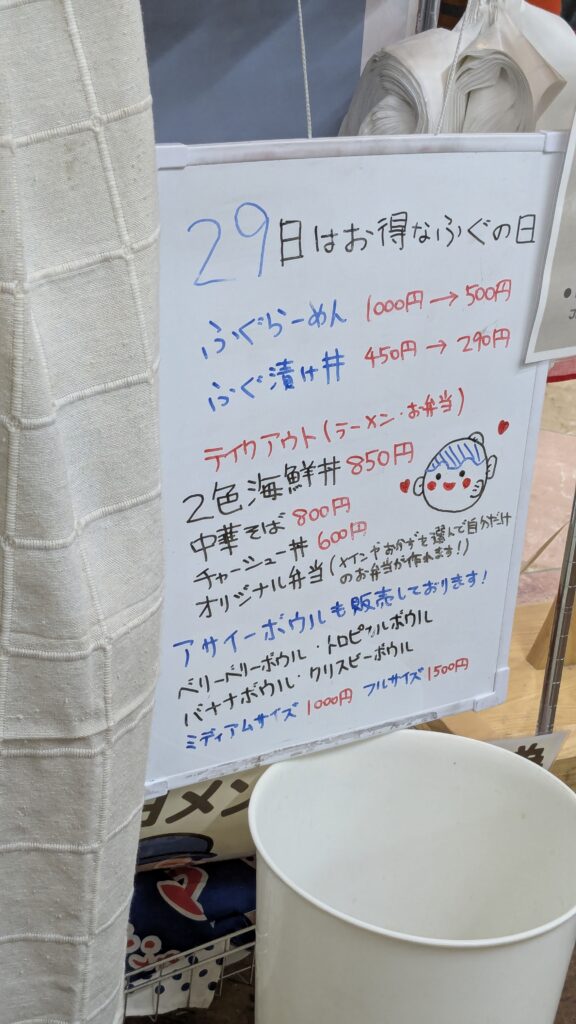 29日はお得なふぐの日
ふぐらーめん 1000円→500円
ふぐ漬け丼 450円→290円
テイクアウト(ラーメン・お弁当)
2色海鮮丼 850円
中華そば 800円
チャーシュー丼 600円
オリジナル弁当(メインやおかずを選んで自分だけ
のお弁当が作れます!)
アサイーボウルも販売しております!
ベリーベリーボウル・トロピカルボウル
バナナボウル・クリスピーボウル
ミディアムサイズ 1000円 フルサイズ 1500円
メン